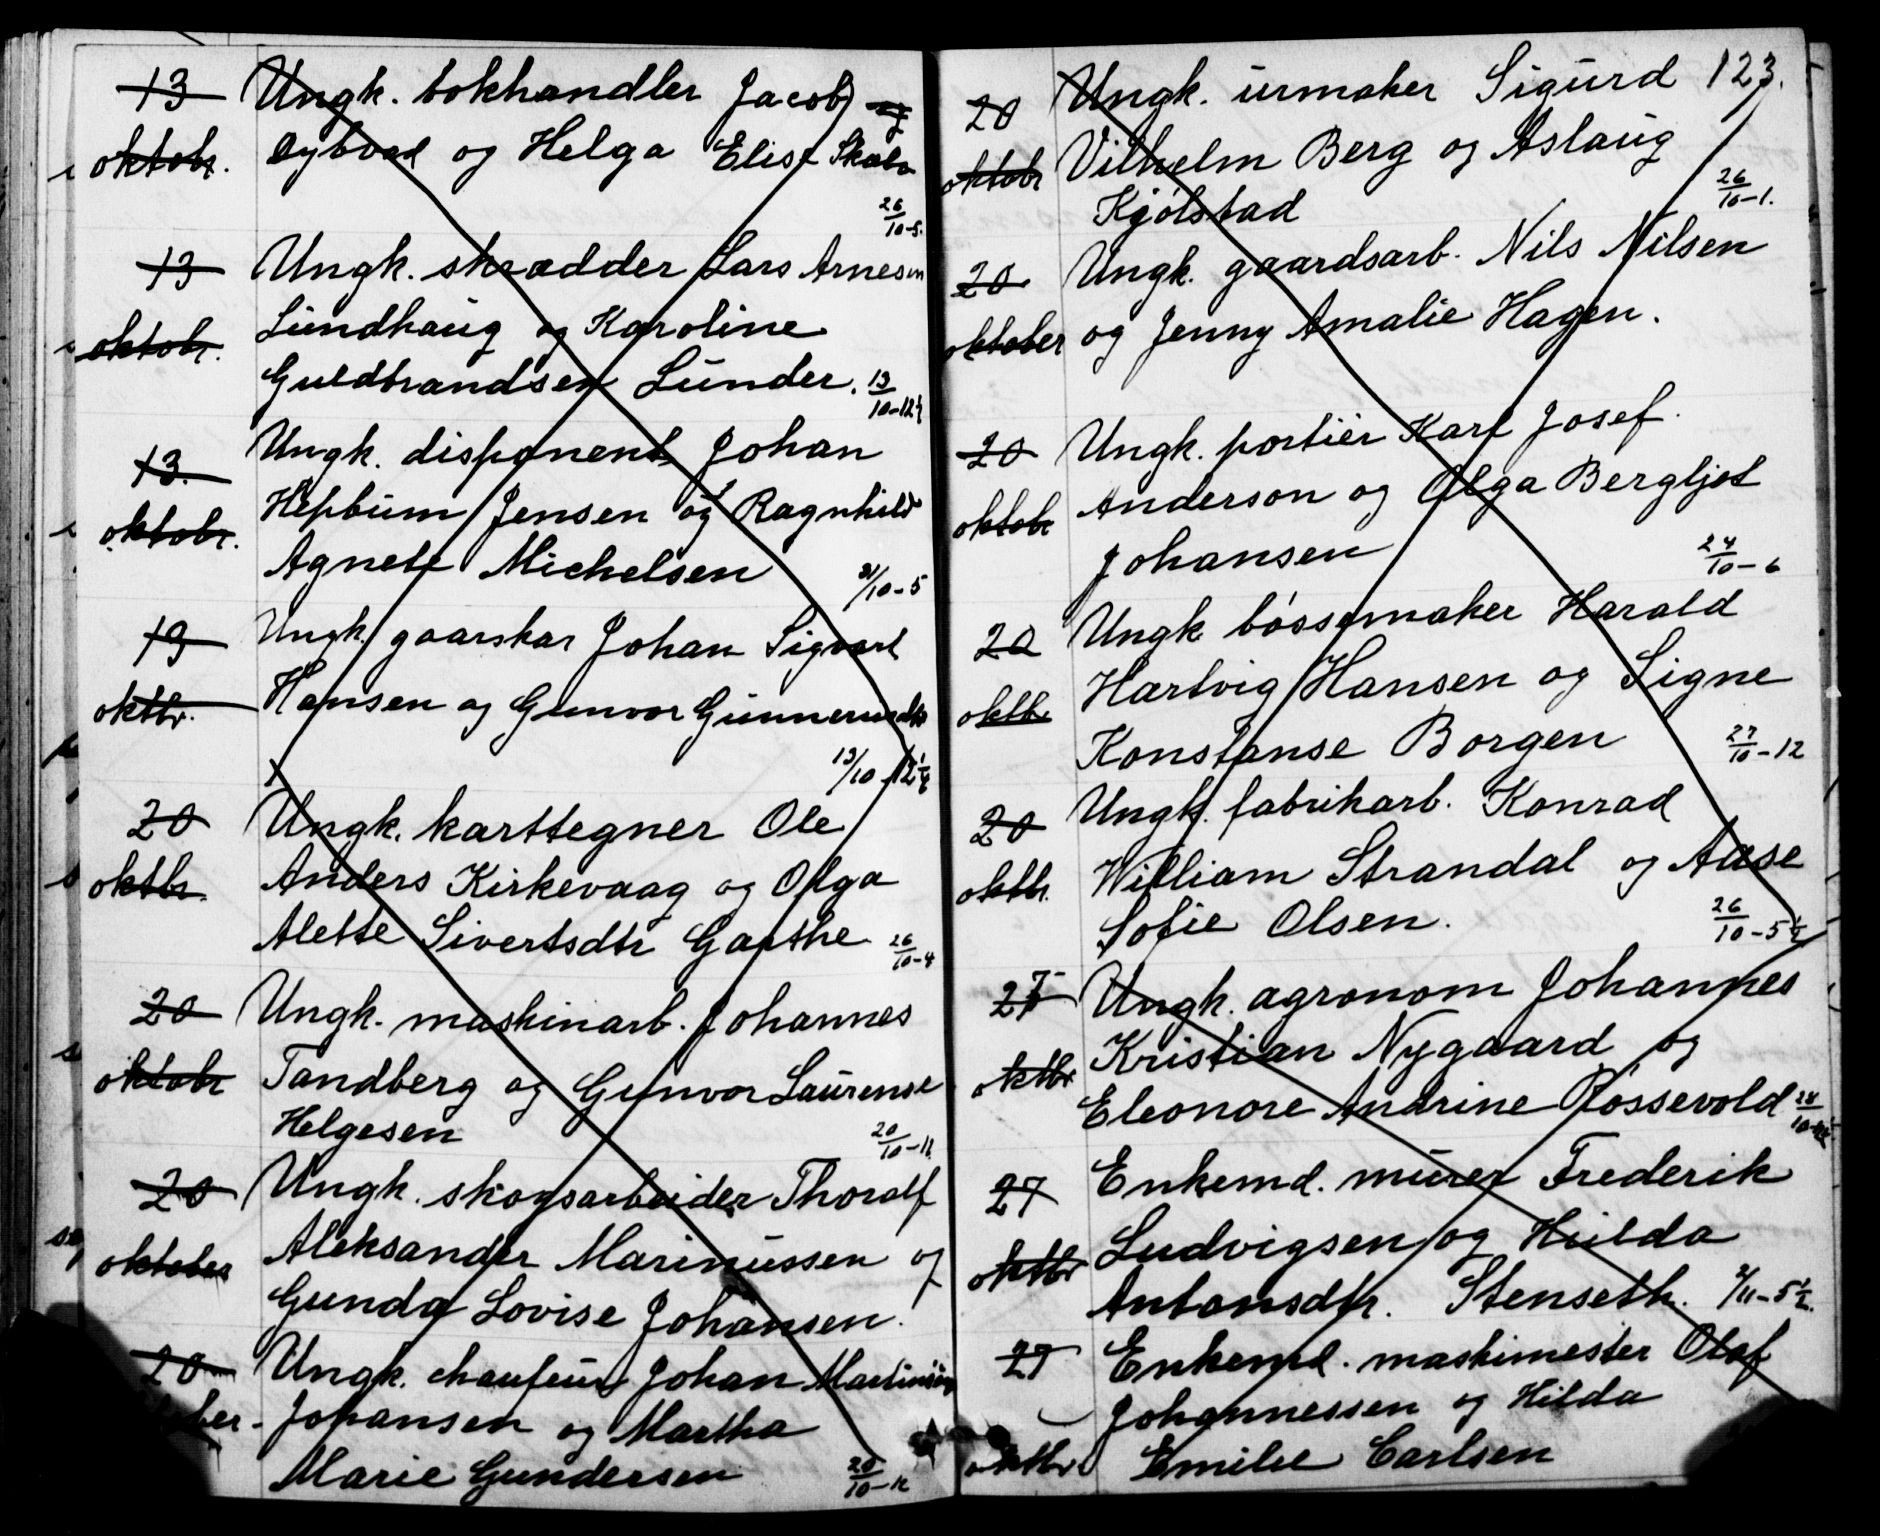 13 Ungk. bokhandler Jacob
oktobr. Dybvad og Helga Elise
26/10-5.
13 Ungk. skrædder Lars Arnesen
oktobr. Lundhaug og Karoline
Guldbrandsen Lunder. 13/10-12½
13. Ungk. disponent Johan
oktobr. Hepburn Jensen og Ragnhild
Agnete Michelsen 31/10-5
13 Ungk. gaarskar Johan Sigvart
oktbr. Hansen og Gunvor
13/10-12½
20 Ungk. karttegner Ole
oktbr. Anders Kirkevaag og Olga
Alette Sivertsdtr Garthe 26/10-4
20 Ungk. maskinarb. Johannes
oktobr Tandberg og Gunvor Laurense
Helgesen 20/10-11.
20 Ungk. skogsarbeider Thoralf
oktober Aleksander Marinussen og
Gunda Lovise Johansen.
20 Ungk. chaufeur Johan
Johansen og Martha
Marie Gundersen 20/10-12
123.
20 Ungk. urmaker Sigurd
oktobr Vilhelm Berg og Aslaug
Kjølstad 26/10-1.
20. Ungk. gaardsarb. Nils Nilsen
oktober og Jenny Amalie Hagen.
20 Ungk. portiér Karl Josef
oktobr Anderson og Olga Bergljot
Johansen 24/10-6
20 Ungk bøssemaker Harald
oktbr Hartvig Hansen og Signe
Konstanse Borgen 27/10-12
20 Ungk. fabrikarb. Konrad
oktbr. William Strandal og Aase
Sofie Olsen. 26/10-5½
27 Ungk. agronom Johannes
oktbr Kristian Nygaard og
Eleonore Andrine Røssevold
27 Enkemd. murer Frederik
oktbr Ludvigsen og Hulda
Antonsdtr. Stenseth. 2/11-5½.
27 Enkemd. maskimester Olaf
Johannessen og Hilda
oktbr Emilie Carlsen